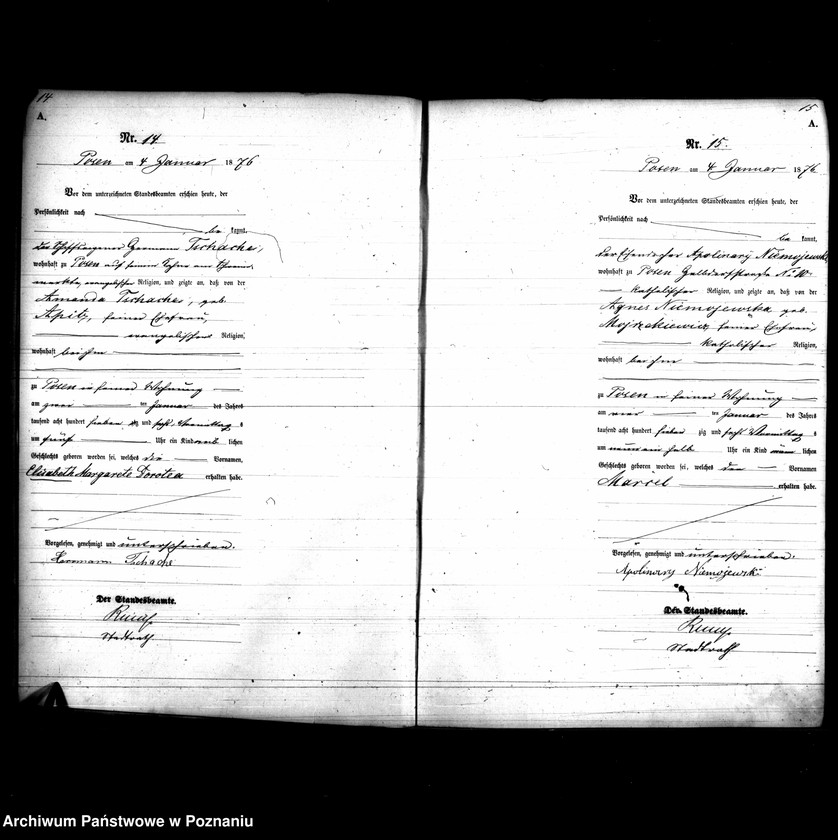 14
A.
Nr. 14
Posen am 4 Januar 1876
Vor dem unterzeichneten Standesbeamten erschien heute, der
Persönlichkeit nach
be kannt,
der Hermann Tschache,
wohnhaft zu Posen auf
evangelischer Religion, und zeigte an, daß von der
Amanda Tschache, geb.
Apitz, seiner Ehefrau,
evangelischer Religion,
wohnhaft bei ihm
zu Posen in seiner Wohnung
am zwei ten Januar des Jahres
tausend acht hundert sieben zig und sechs Vormittag s
um fünf Uhr ein Kind weib lichen
Geschlechts geboren worden sei, welches die Vornamen,
Elisabeth Margarete Dorotea erhalten habe.
Vorgelesen, genehmigt und unterschrieben.
Hermann Tschache
Der Standesbeamte.
Stadtrath
15
A.
Nr. 15.
Posen am 4 Januar 1876
Vor dem unterzeichneten Standesbeamten erschien heute, der
Persönlichkeit nach
be kannt,
der Apolinary Niemojewski
wohnhaft zu Posen No 10
katholischer Religion, und zeigte an, daß von der
Agnes Niemojewska geb.
seiner Ehefrau,
katholischer Religion,
wohnhaft bei ihm
zu Posen in seiner Wohnung
am vier ten Januar des Jahres
tausend acht hundert sieben zig und sechs Vormittag s
um ein halb Uhr ein Kind männ lichen
Geschlechts geboren worden sei, welches den Vornamen
Marcel erhalten habe.
Vorgelesen, genehmigt und unterschrieben.
Apolinary Niemojewski
Der Standesbeamte.
Stadtrath
Archiwum Państwowe w Poznaniu